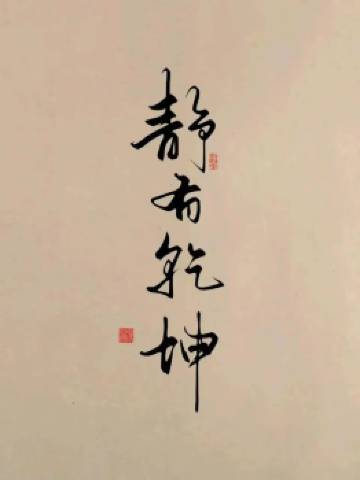 静有乾坤